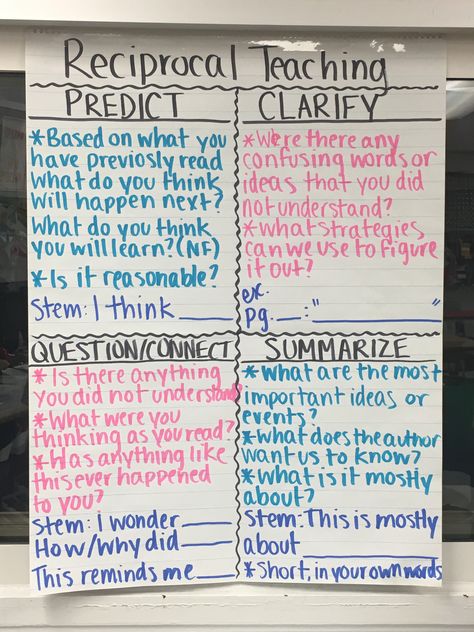 Reciprocal Teaching
PREDICT
*Based on what you
have previosly read
what do you think
will happen next?
What do you think
you will learn? (NF)
*Is it reasonable?
Stem: I think ____
CLARIFY
*Were there any
confusing words or
ideas that you did
not understand?
*what strategies
can we use to figure
it out?
ex.
pg. __: "__________"
QUESTION/CONNECT
*Is there anything
you did not understand?
*What were you
thinking as you read?
*Has anything like
this ever happened
to you?
Stem: I wonder ____
How/why did ____
This reminds me ____
SUMMARIZE
*What are the most
important ideas or
events?
*what does the author
want us to know?
*what is it mostly
about?
Stem: This is mostly
about __________
*Short, in your own words